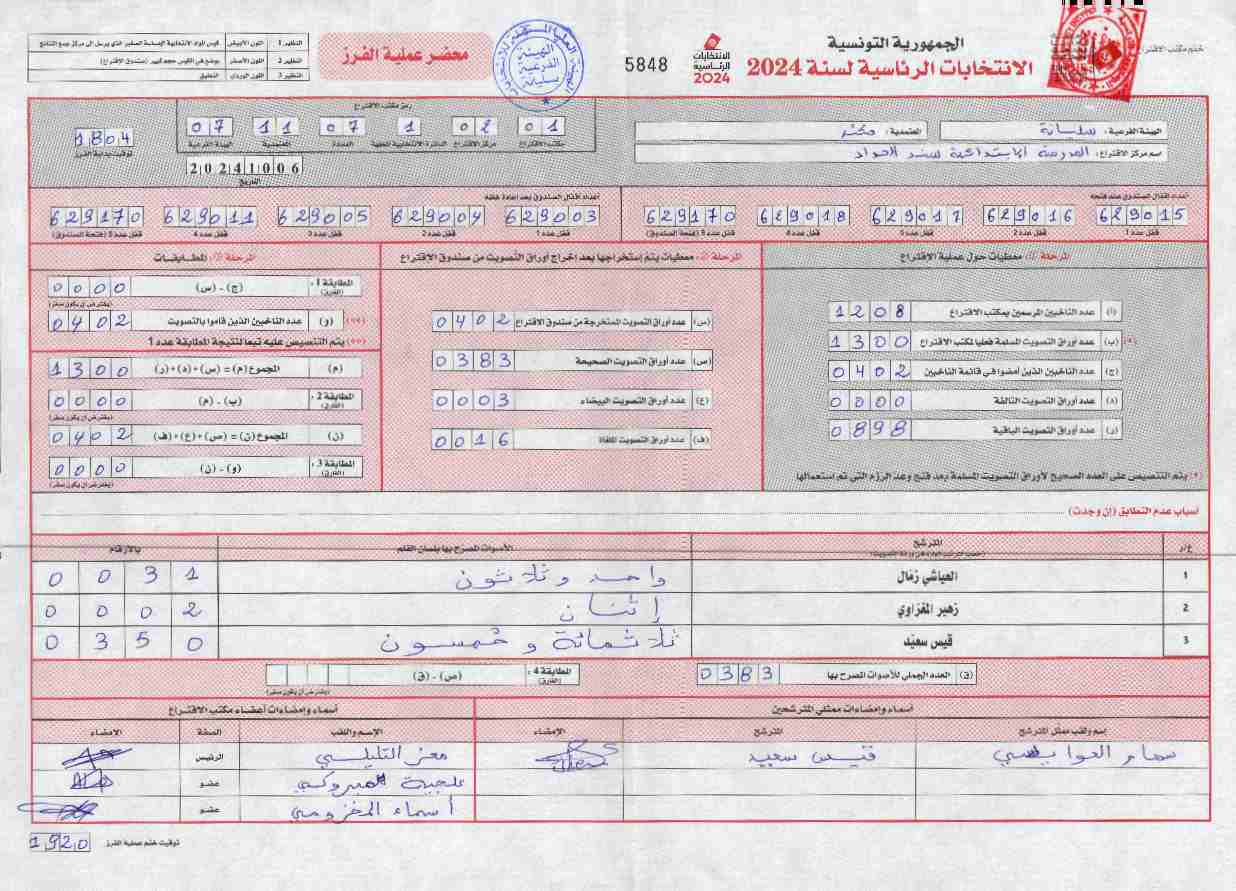 ختم مكتب الاقتراع
الجمهورية التونسية
الانتخابات الرئاسية لسنة 2024
الانتخابات الرئاسية 2024
5848
الهيئة العليا المستقلة للانتخابات
الهيئة الفرعية سليانة
محضر عملية الفرز
النظير 1 اللون الأبيض كيس المواد الانتخابية الحساسة الصغير الذي يرسل الى مركز جمع النتائج
النظير 2 اللون الأصفر يوضع في الكيس حجم كبير (صندوق الاقتراع)
النظير 3 اللون الوردي التعليق
الهيئة الفرعية: سليانة المعتمدية: مكثر
اسم مركز الاقتراع: المدرسة الابتدائية سند الحداد
رمز مكتب الاقتراع
01 02 1 07 11 07
مكتب الاقتراع مركز الاقتراع الدائرة الانتخابية المحلية العمادة المعتمدية الهيئة الفرعية
20241006
التاريخ
1804
توقيت بداية الفرز
أعداد أقفال الصندوق عند فتحه
629015 629016 629017 629018 629170
قفل عدد 1 قفل عدد 2 قفل عدد 3 قفل عدد 4 قفل عدد 5 (فتحة الصندوق)
أعداد أقفال الصندوق بعد إعادة غلقه
629003 629004 629005 629011 629170
قفل عدد 1 قفل عدد 2 قفل عدد 3 قفل عدد 4 قفل عدد 5 (فتحة الصندوق)
معطيات حول عملية الاقتراع
(أ) عدد الناخبين المرسمين بمكتب الاقتراع 1208
(*) (ب) عدد أوراق التصويت المسلمة فعليا لمكتب الاقتراع 1300
(ج) عدد الناخبين الذين أمضوا في قائمة الناخبين 0402
(د) عدد أوراق التصويت التالفة 0000
(ر) عدد أوراق التصويت الباقية 0898
(*) يتم التنصيص على العدد الصحيح لأوراق التصويت المسلمة بعد فتح وعد الرزم التي تم استعمالها
معطيات يتم إستخراجها بعد إخراج أوراق التصويت من صندوق الاقتراع
(س) عدد أوراق التصويت المستخرجة من صندوق الاقتراع 0402
(ص) عدد أوراق التصويت الصحيحة 0383
(ع) عدد أوراق التصويت البيضاء 0003
(ف) عدد أوراق التصويت الملغاة 0016
المطابقات
المطابقة 1: (الفارق) (ج) - (س) 0000
(يفترض أن يكون صفر)
(**) (و) عدد الناخبين الذين قاموا بالتصويت 0402
(**) يتم التنصيص عليه تبعا لنتيجة المطابقة عدد 1
(م) المجموع (م) = (س)+(د)+(ر) 1300
المطابقة 2: (الفارق) (ب) - (م) 0000
(يفترض أن يكون صفر)
(ن) المجموع (ن) = (ص)+(ع)+(ف) 0402
المطابقة 3: (الفارق) (و) - (ن) 0000
(يفترض أن يكون صفر)
أسباب عدم التطابق (إن وجدت)
ع/ر المترشح الأصوات المصرح بها بلسان القلم بالأرقام
(حسب الترتيب الوارد في ورقة التصويت)
1 العياشي زمّال واحد وثلاثون 0031
2 زهير المغزاوي إثنان 0002
3 قيس سعيّد ثلاثمائة وخمسون 0350
(ق) العدد الجملي للأصوات المصرح بها 0383
المطابقة 4: (الفارق) (ص) - (ق)
(يفترض أن يكون صفر)
أسماء وإمضاءات ممثلي المترشحين
إسم ولقب ممثل المترشح المترشح الإمضاء
قيس سعيد
أسماء وإمضاءات أعضاء مكتب الاقتراع
الإسم واللقب الصفة الإمضاء
معز التليلي الرئيس
علجية المبروكي عضو
أسماء المخزومي عضو
توقيت ختم عملية الفرز 1920